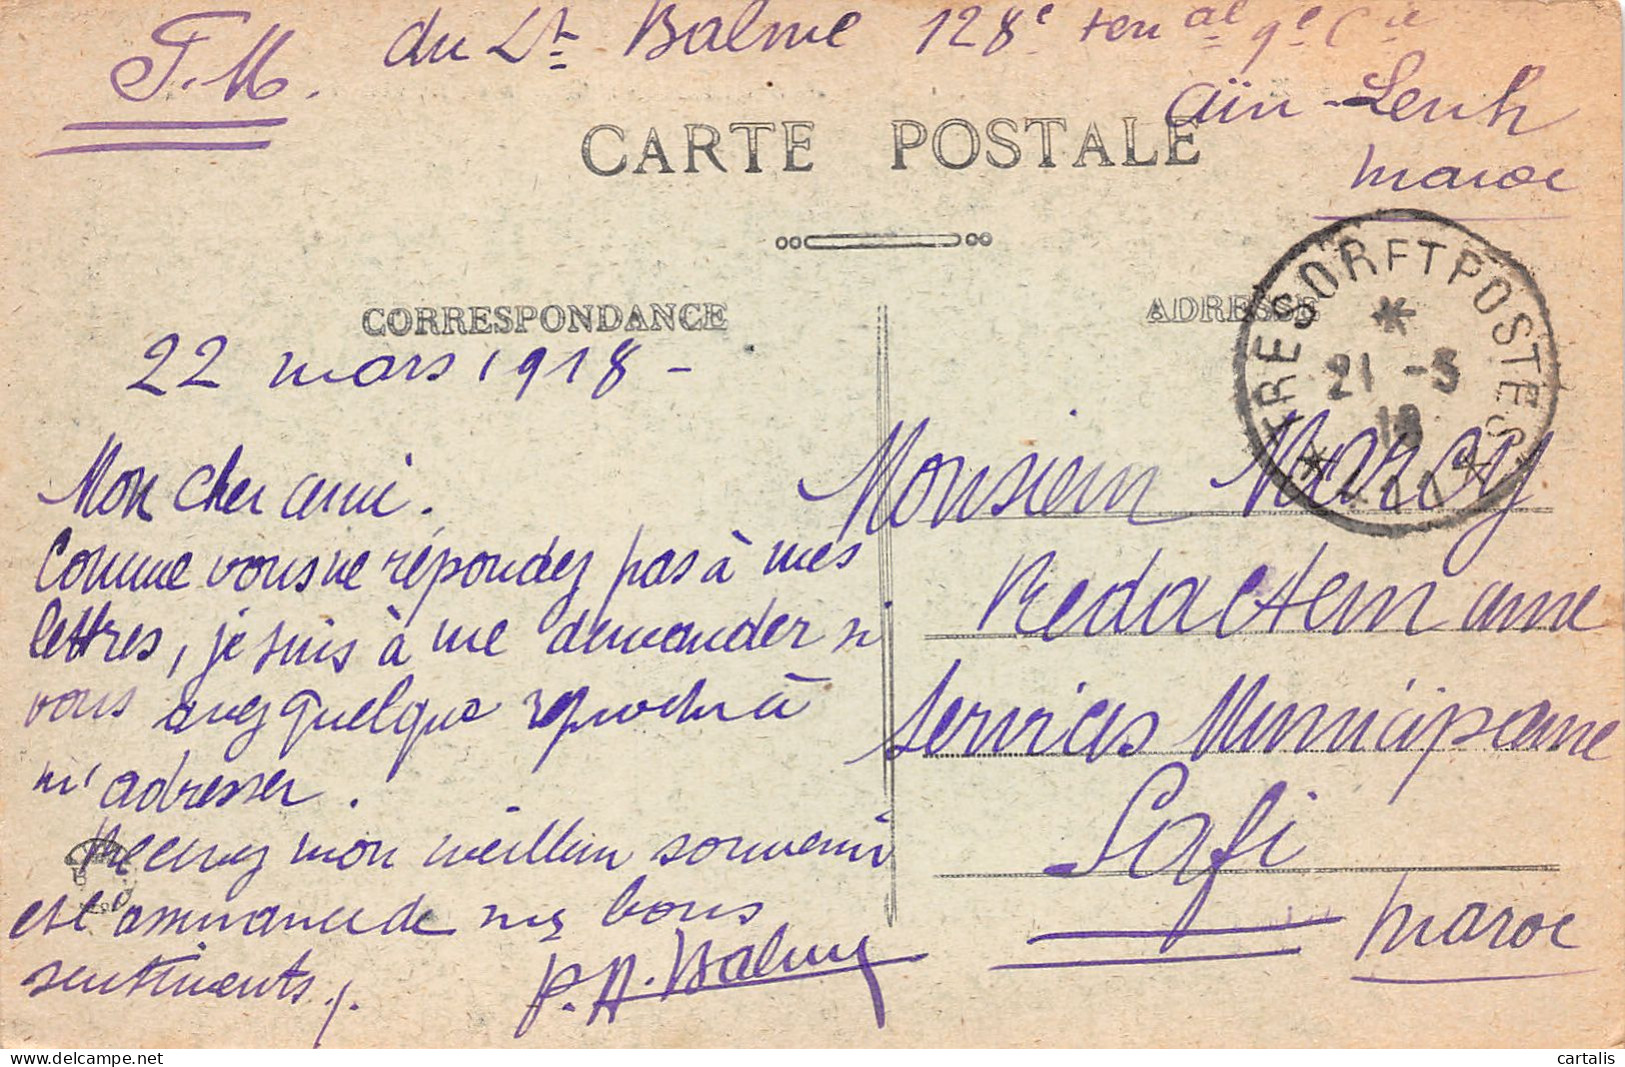 F.M. du Lt Balme 128e ter^al 9e Cie
Aïn-Leuh
Maroc
CARTE POSTALE
CORRESPONDANCE
ADRESSE
TRESOR ET POSTES
21 -3
18
22 mars 1918 -
Mon cher ami.
Comme vous ne répondez pas à mes
lettres, je suis à me demander si
vous avez quelque reproche à
m'adresser.
Recevez mon meilleur souvenir
et l'assurance de mes bons
sentiments.
P.A. Balme
Monsieur Marcy
Redacteur aux
Services Municipaux
Safi
Maroc
cartalis